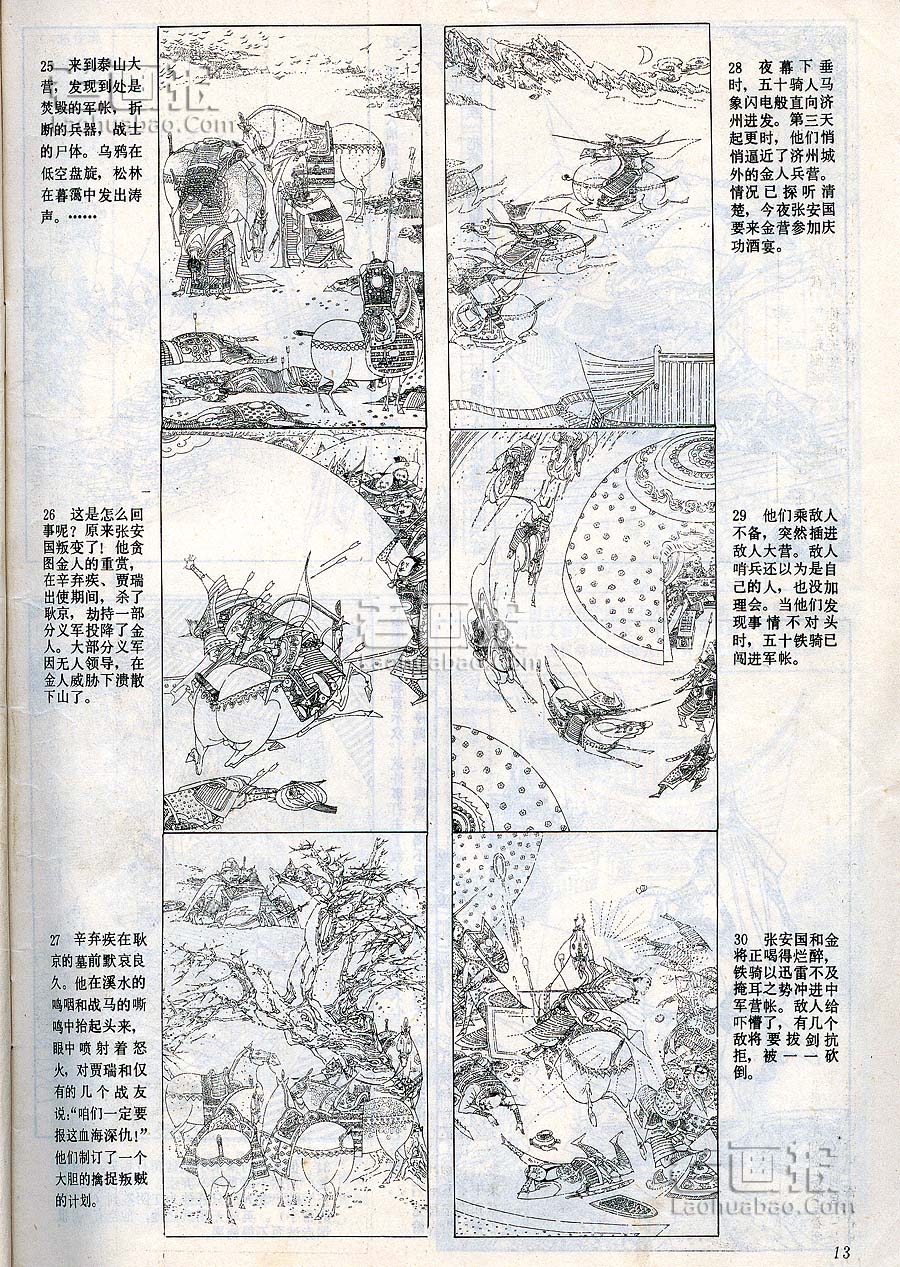 25　来到泰山大
营，发现到处是
焚毁的军帐，折
断的兵器，战士
的尸体。乌鸦在
低空盘旋，松林
在暮霭中发出涛
声。……
26　这是怎么回
事呢？原来张安
国叛变了！他贪
图金人的重赏，
在辛弃疾、贾瑞
出使期间，杀了
耿京，劫持一部
分义军投降了金
人。大部分义军
因无人领导，在
金人威胁下溃散
下山了。
27　辛弃疾在耿
京的墓前默哀良
久。他在溪水的
呜咽和战马的嘶
鸣中抬起头来，
眼中喷射着怒
火，对贾瑞和仅
有的几个战友
说：“咱们一定要
报这血海深仇！”
他们制订了一个
大胆的擒捉叛贼
的计划。
28　夜幕下垂
时，五十骑人马
象闪电般直向济
州进发。第三天
起更时，他们悄
悄逼近了济州城
外的金人兵营。
情况已探听清
楚，今夜张安国
要来金营参加庆
功酒宴。
29　他们乘敌人
不备，突然插进
敌人大营。敌人
哨兵还以为是自
己的人，也没加
理会。当他们发
现事情不对头
时，五十铁骑已
闯进军帐。
30　张安国和金
将正喝得烂醉，
铁骑以迅雷不及
掩耳之势冲进中
军营帐。敌人给
吓懵了，有几个
敌将要拔剑抗
拒，被一一砍
倒。
老画报
Laohuabao.Com
老画报
Laohuabao.Com
老画报
Laohuabao.Com
老画报
Laohuabao.Com
13